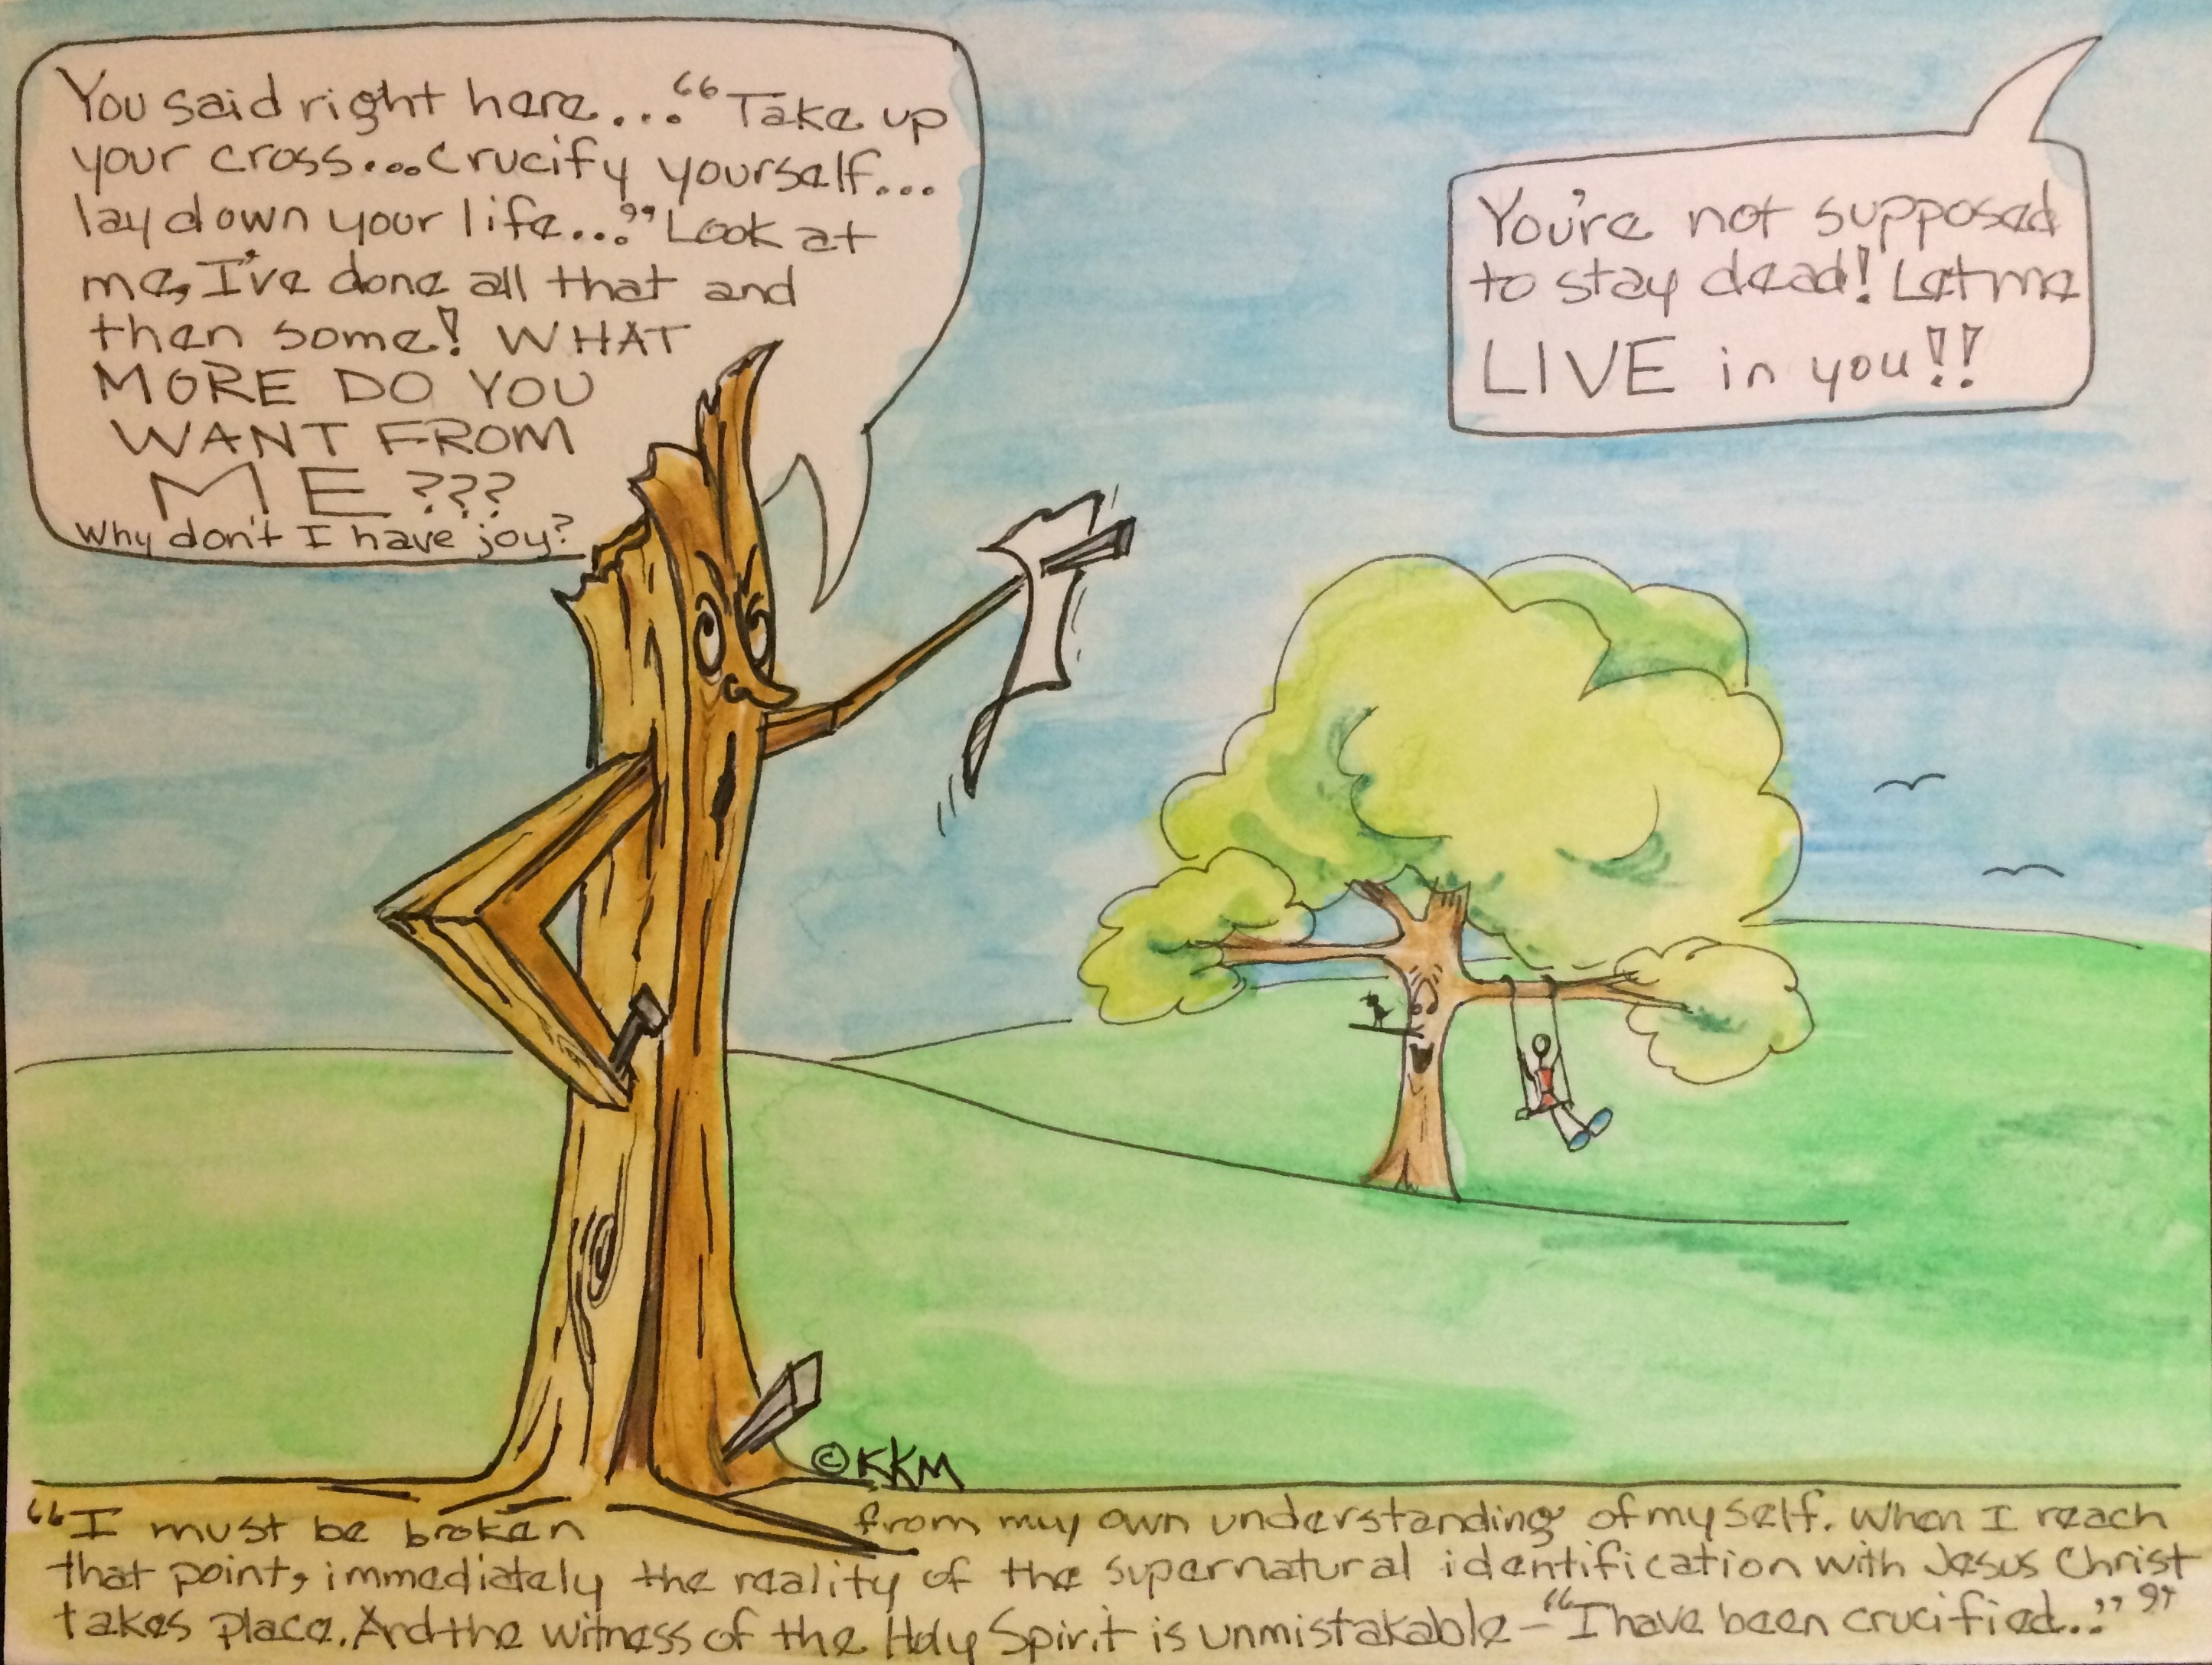 You said right here...“Take up
your cross....crucify yourself...
lay down your life...” Look at
me, I've done all that and
then some! WHAT
MORE DO YOU
WANT FROM
ME???
Why don't I have joy?
You're not supposed
to stay dead! Let me
LIVE in you!!
©KKM
“I must be broken from my own understanding of myself. When I reach
that point, immediately the reality of the supernatural identification with Jesus Christ
takes place. And the witness of the Holy Spirit is unmistakable – “I have been crucified..””